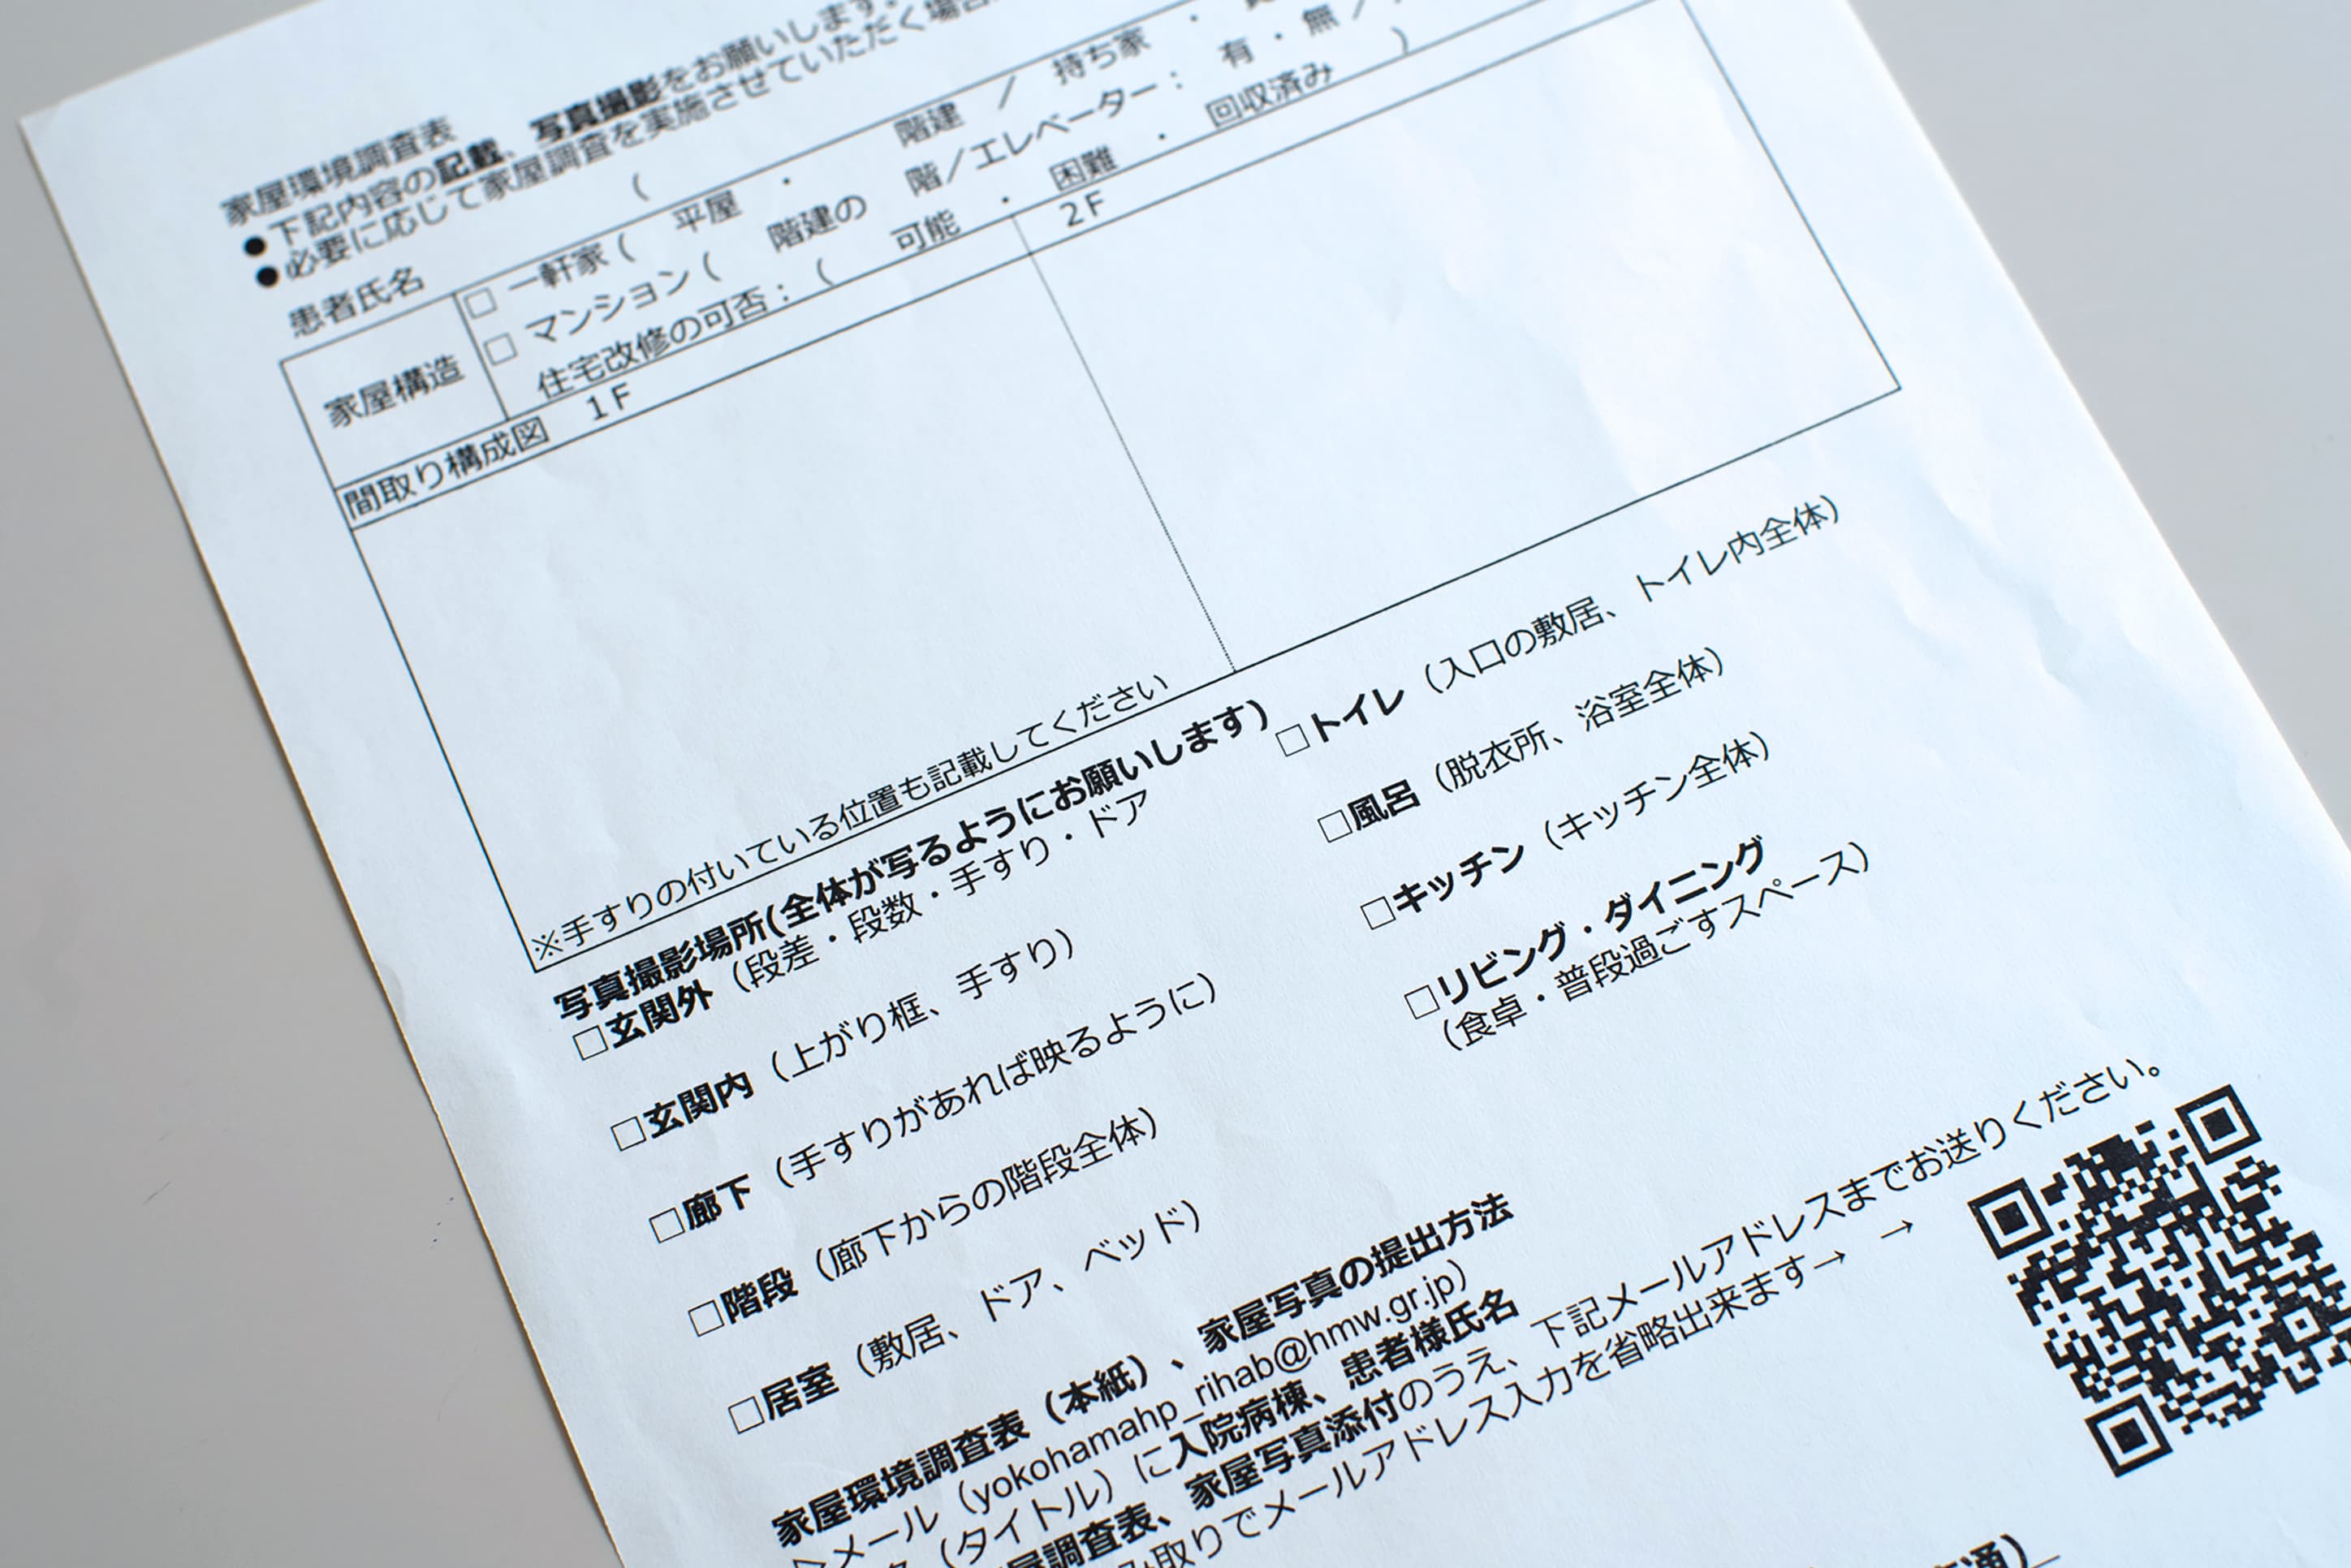 家屋環境調査表
●下記内容の記載、写真撮影をお願いします。
●必要に応じて家屋調査を実施させていただく場合
患者氏名 (
家屋構造
□ 一軒家 ( 平屋 ・ 階建 / 持ち家 ・
□ マンション ( 階建の 階/エレベーター: 有 ・ 無 /
住宅改修の可否: ( 可能 ・ 困難 ・ 回収済み )
間取り構成図 1F 2F
※手すりの付いている位置も記載してください
写真撮影場所(全体が写るようにお願いします)
□玄関外(段差・段数・手すり・ドア
□玄関内(上がり框、手すり)
□廊下(手すりがあれば映るように)
□階段(廊下からの階段全体)
□居室(敷居、ドア、ベッド)
□トイレ(入口の敷居、トイレ内全体)
□風呂(脱衣所、浴室全体)
□キッチン(キッチン全体)
□リビング・ダイニング
(食卓・普段過ごすスペース)
家屋環境調査表(本紙)、家屋写真の提出方法
メール(yokohamahp_rihab@hmw.gr.jp)
(タイトル)に入院病棟、患者様氏名
調査表、家屋写真添付のうえ、下記メールアドレスまでお送りください。
取りでメールアドレス入力を省略出来ます→ →